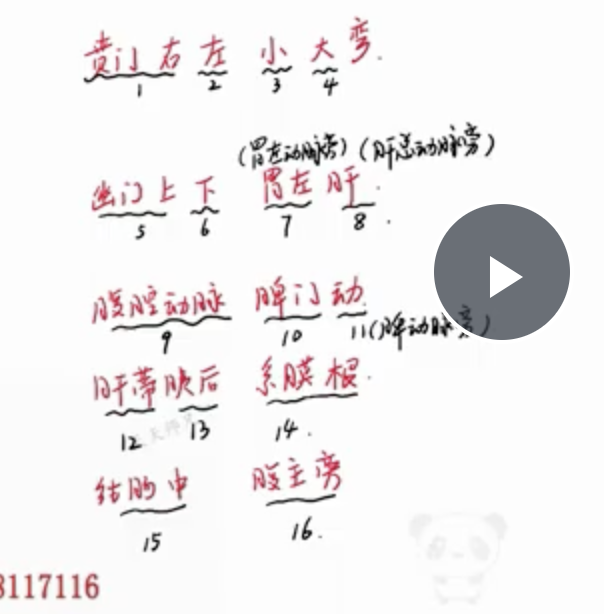 贲门右 左 小 大 弯.
1 2 3 4
(胃左动脉旁) (肝总动脉旁)
幽门上 下 胃左 肝.
5 6 7 8.
腹腔动脉 脾门 动.
9 10 11(脾动脉旁)
肝蒂 胰后 系膜根.
12 13 14.
结肠中 腹主旁
15 16.
8117116